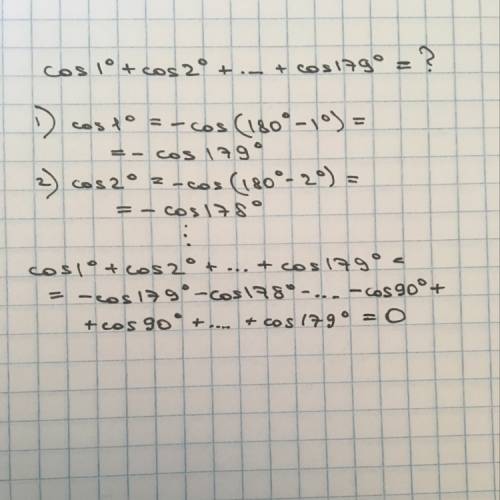 cos1° + cos2° + ... + cos179° = ?
1) cos1° = -cos(180° - 1°) =
= - cos179°
2) cos2° = -cos(180° - 2°) =
= - cos178°
⋮
cos1° + cos2° + ... + cos179° =
= -cos179° - cos178° - ... - cos90° +
+ cos90° + .... + cos179° = 0